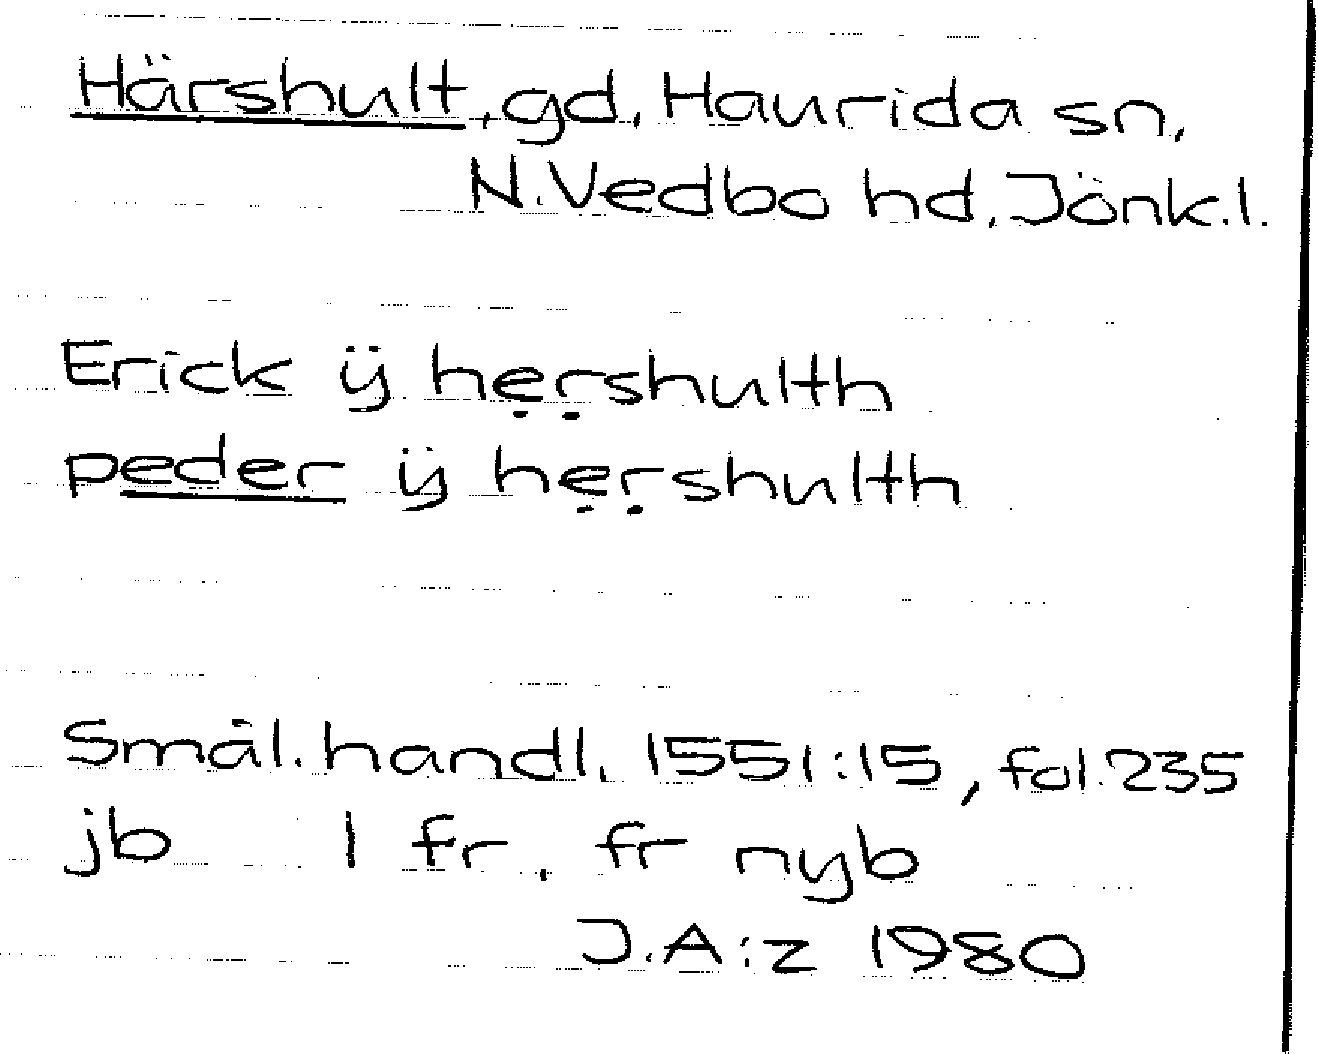 Härshult, gd, Haurida sn,
N. Vedbo hd, Jönk. l.
Erick ÿ hẹṛshulth
peder ÿ hẹṛshulth
Smål. handl. 1551:15, fol. 235
jb 1 fr, fr nyb
J.A:z 1980